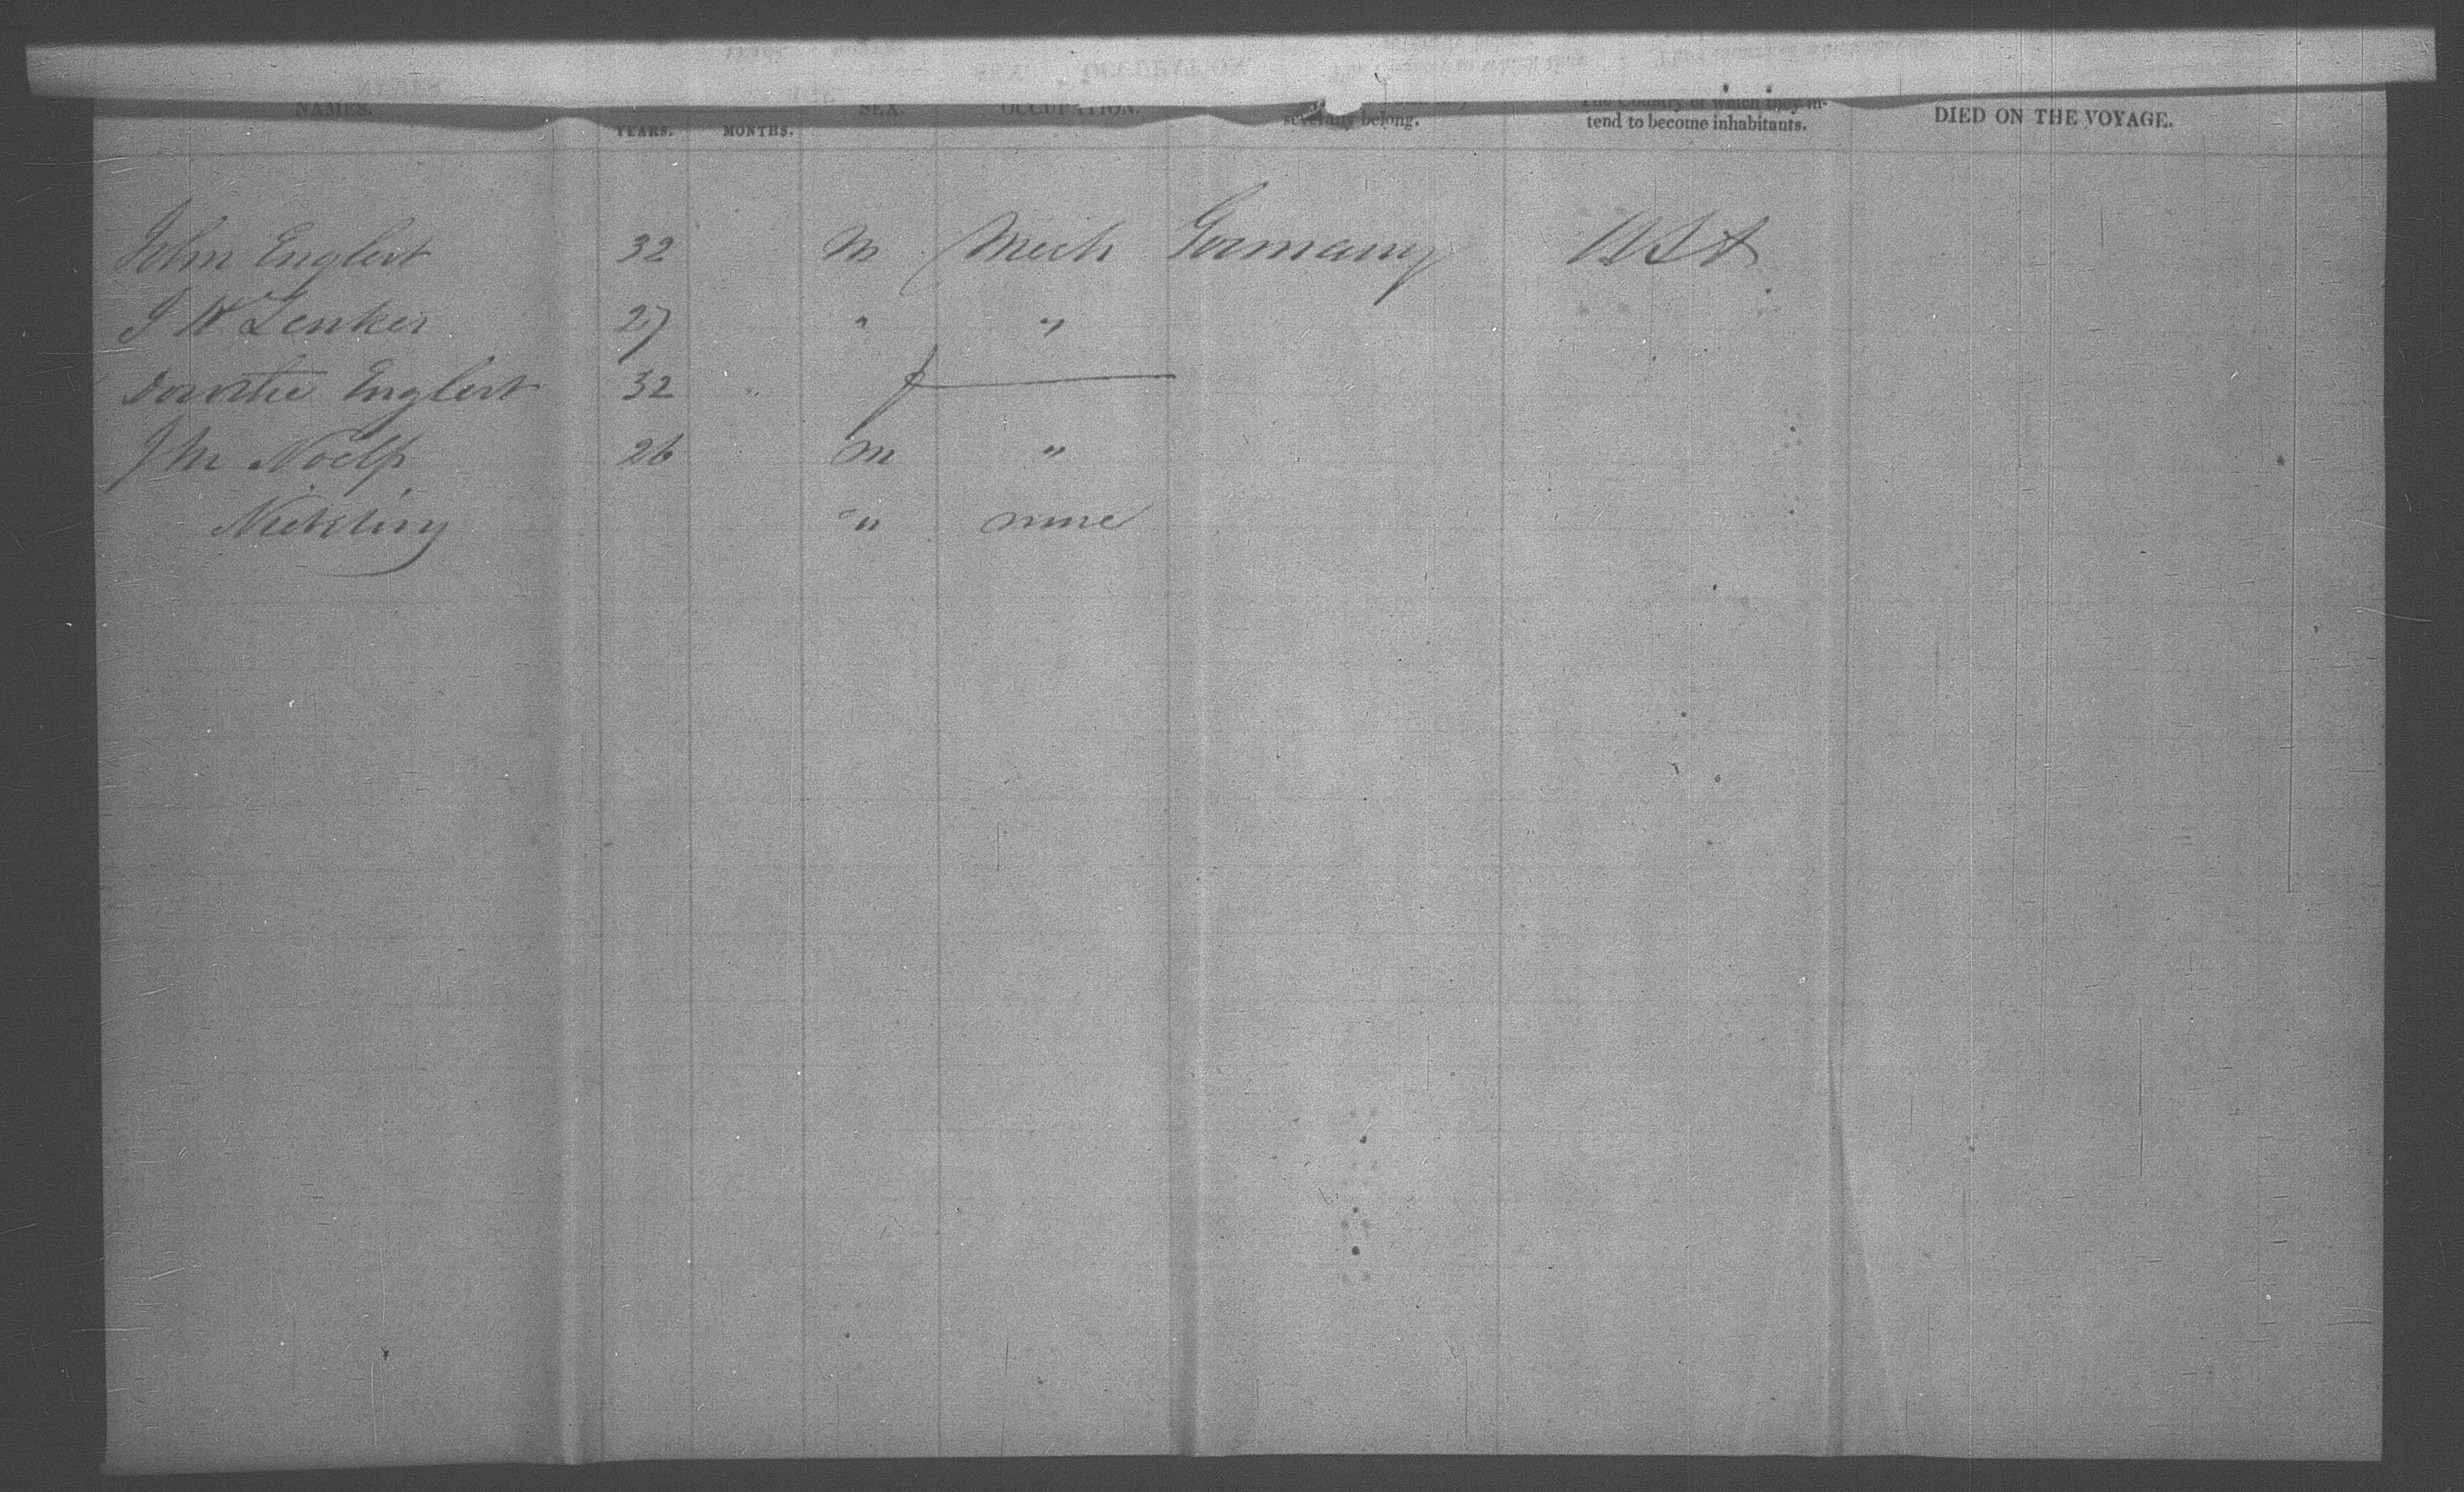 NAMES.
YEARS. MONTHS. SEX. OCCUPATION. severally belong. The Country of which they in- tend to become inhabitants. DIED ON THE VOYAGE.
John Englert 32 M Mech Germany USA
J W Zenker 27 " "
Dorothe Englert 32 f
J M 26 m "
" none